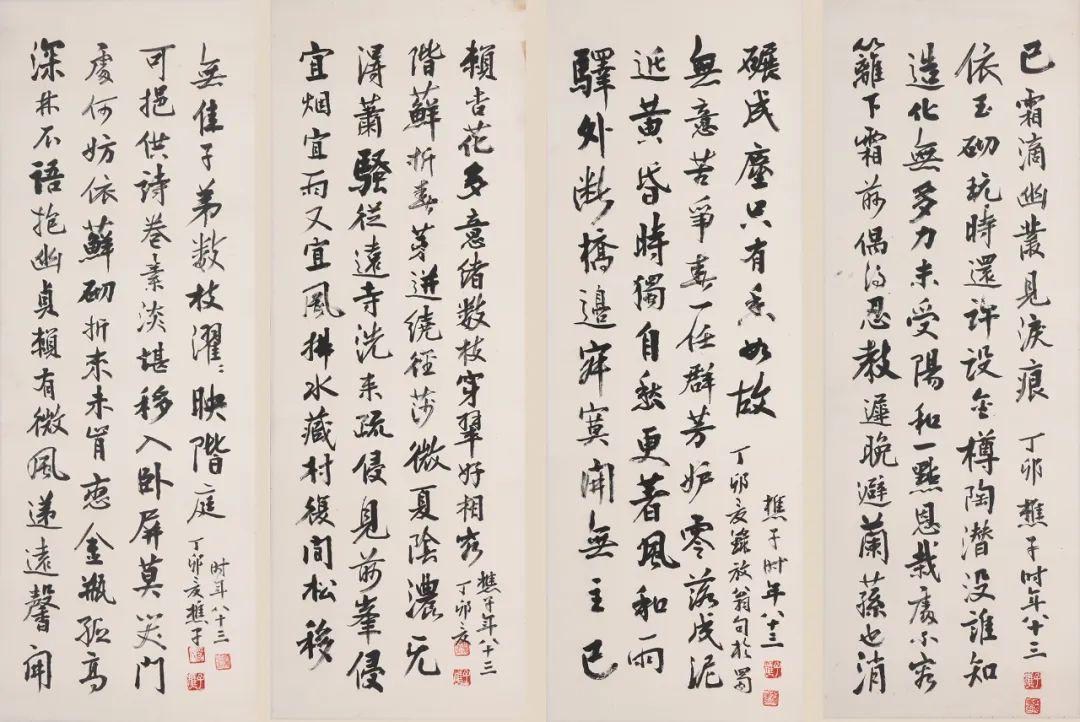 深林不語抱幽貞賴有微風遞遠馨開
處何妨依蘚砌折來未肯戀金瓶孤高
可挹供詩卷素淡堪移入卧屏莫笑門
無佳子弟数枝濯〻映階庭
丁卯亥樵子
时年八十三
宜烟宜雨又宜風拂水藏村復間松移
得蕭騷從遠寺洗来疏侵見前峯侵
階蘚折春芽迸繞徑莎微夏陰濃无
賴杏花多意緒数枝穿翠好相容
丁卯亥
樵子年八十三
驛外断橋邊寂寞開無主已
近黄昏時獨自愁更著風和雨
無意苦爭春一任群芳妒零落成泥
碾成塵只有香如故
丁卯亥錄放翁句於蜀
樵子时年八十三
籬下霜前偶得忍教遲晚避蘭蓀也消
造化無多力未受陽和一點恩栽處不容
依玉砌玩時還許設金樽陶潛没誰知
已霜滴幽叢見淚痕
丁卯樵子时年八十三